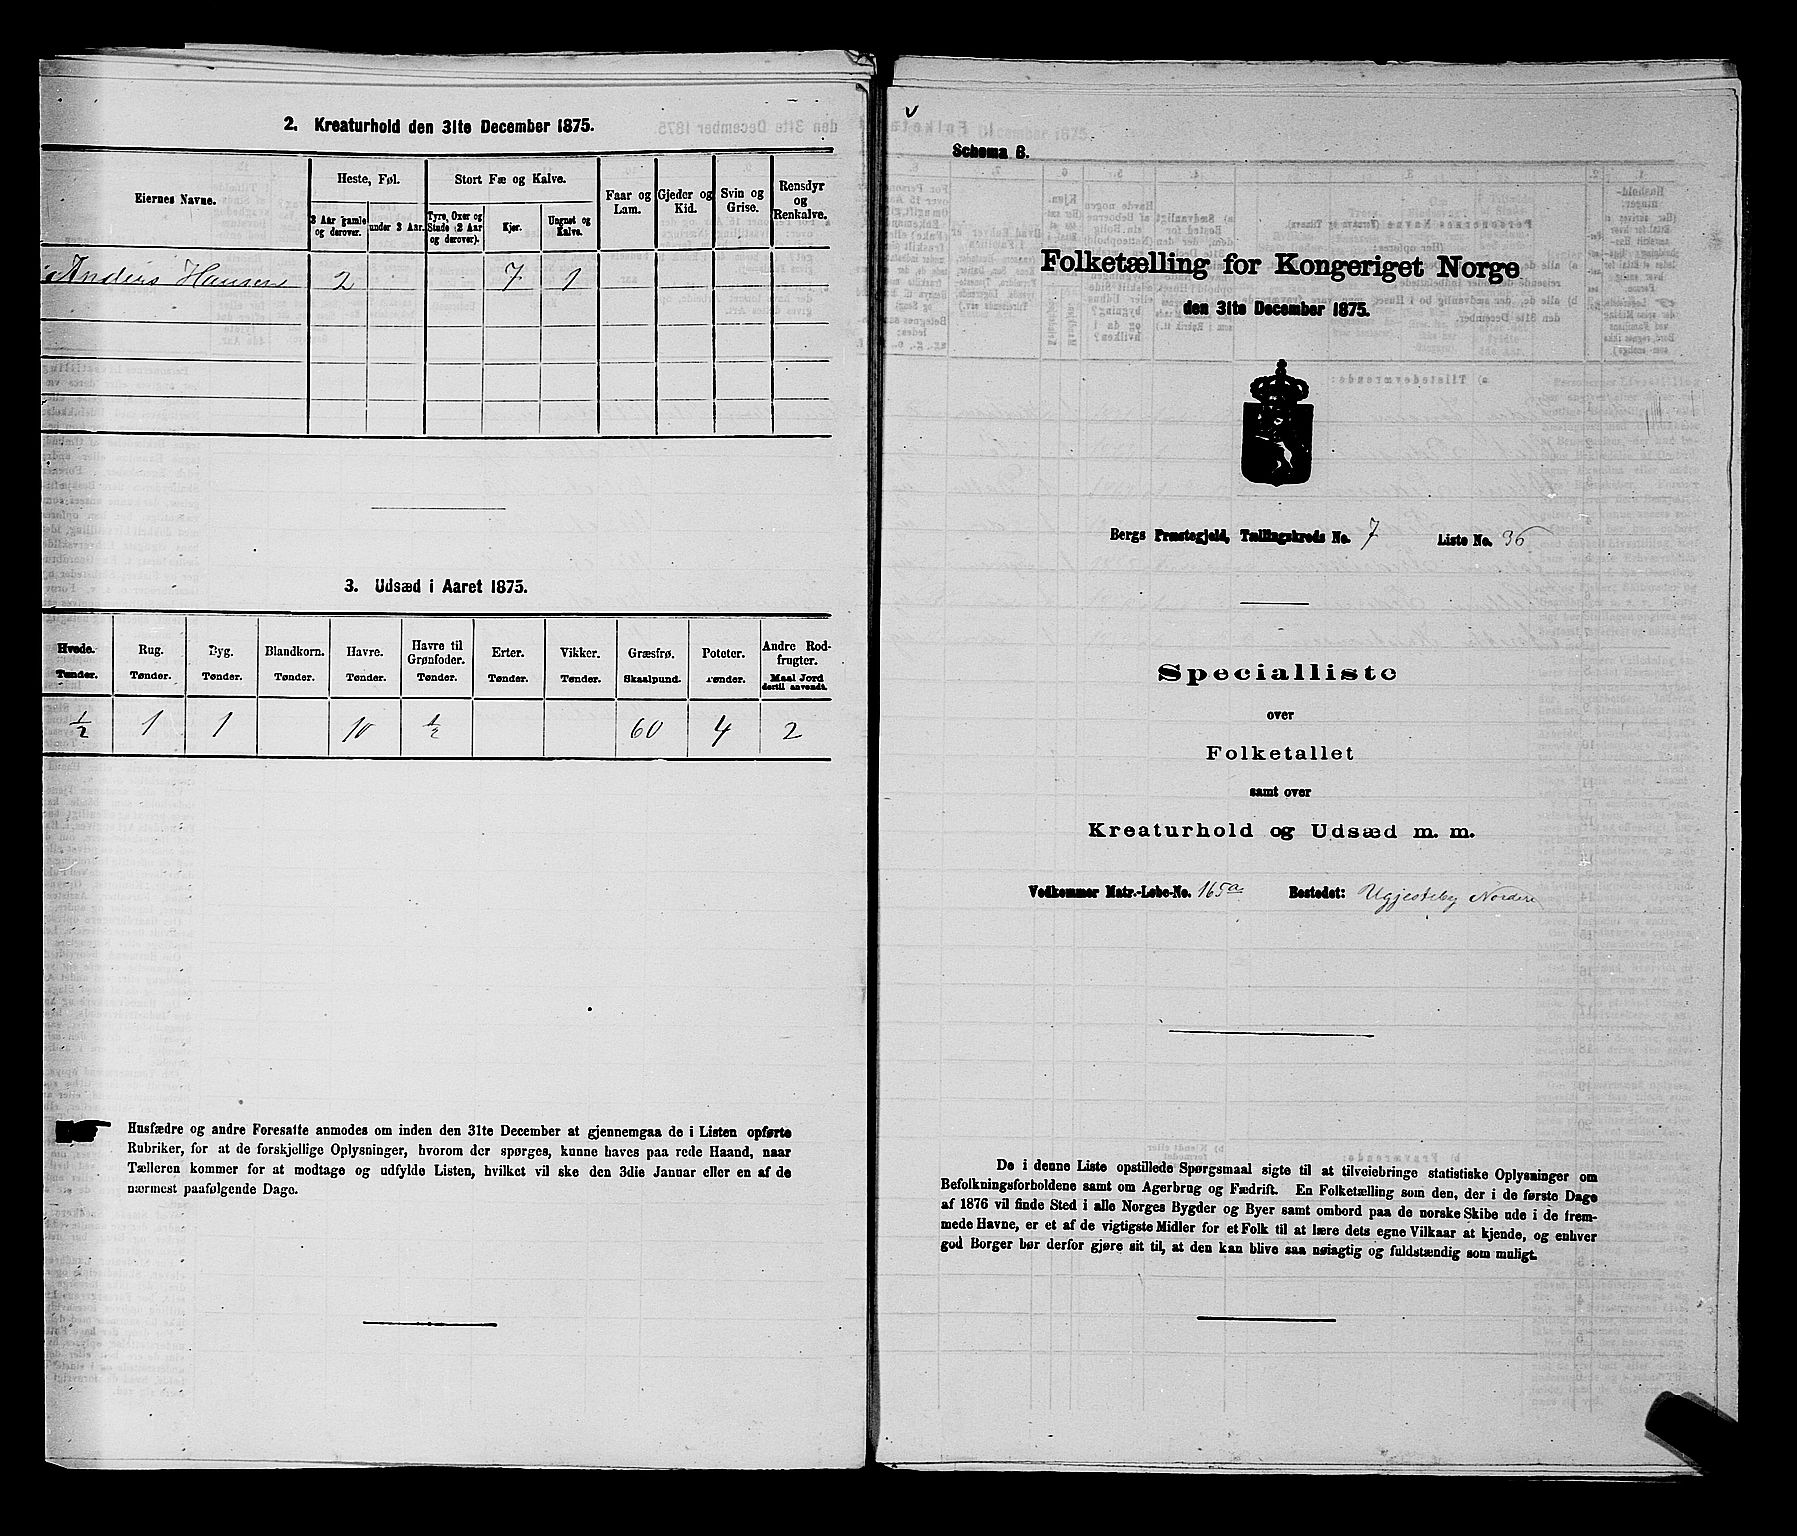 2. Kreaturhold den 31te December 1875.
Eiernes Navne.
Heste, Føl.
Stort Fæ og Kalve.
Faar og Lam.
Gjeder og Kid.
Svin og Grise.
Rensdyr og Renkalve.
3 Aar gamle og derover.
under 3 Aar.
Tyre, Oxer og Stude (2 Aar og derover).
Kjør.
Ungnøt og Kalve.
Anders Hansen 2 7 1
3. Udsæd i Aaret 1875.
Hvede. Rug. Byg. Blandkorn. Havre. Havre til Grønfoder. Erter. Vikker. Græsfrø. Poteter. Andre Rodfrugter.
Tønder. Tønder. Tønder. Tønder. Tønder. Tønder. Tønder. Tønder. Skaalpund. Tønder. Maal Jord dertil anvendt.
1/2 1 1 10 1/2 60 4 2
Husfædre og andre Foresatte anmodes om inden den 31te December at gjennemgaa de i Listen opførte
Rubriker, for at de forskjellige Oplysninger, hvorom der spørges, kunne haves paa rede Haand, naar
Tælleren kommer for at modtage og udfylde Listen, hvilket vil ske den 3die Januar eller en af de
nærmest paafølgende Dage.
Schema B.
Folketælling for Kongeriget Norge
den 31te December 1875.
Bergs Præstegjeld, Tællingskreds No. 7 Liste No. 36
Specialliste
over
Folketallet
samt over
Kreaturhold og Udsæd m. m.
Vedkommer Matr.-Løbe-No. 165a Bostedet: Ugjesteby Nordre
De i denne Liste opstillede Spørgsmaal sigte til at tilveiebringe statistiske Oplysninger om
Befolkningsforholdene samt om Agerbrug og Fædrift. En Folketælling som den, der i de første Dage
af 1876 vil finde Sted i alle Norges Bygder og Byer samt ombord paa de norske Skibe ude i de frem-
mede Havne, er et af de vigtigste Midler for et Folk til at lære dets egne Vilkaar at kjende, og enhver
god Borger bør derfor gjøre sit til, at den kan blive saa nøiagtig og fuldstændig som muligt.